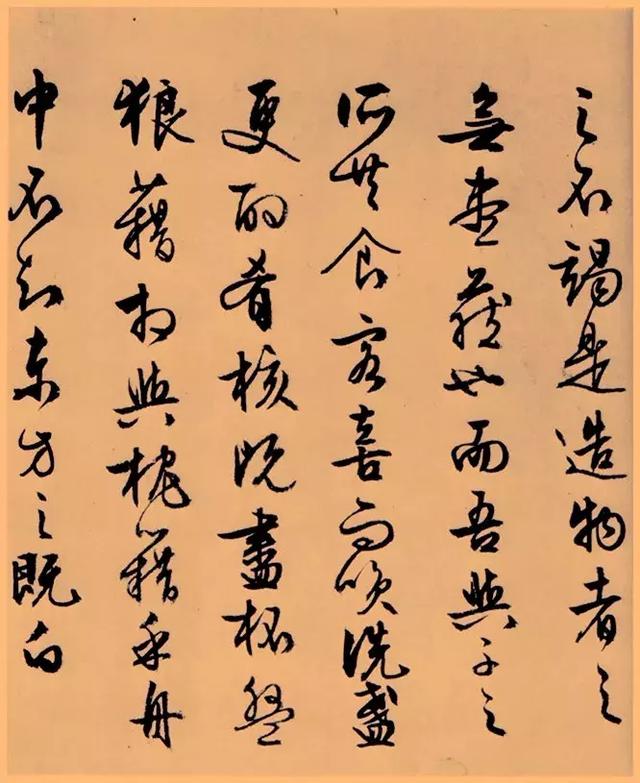 之不竭是造物者之
無盡藏也而吾與子之
所共食客喜而咲洗盞
更酌肴核既盡杯盤
狼藉相與枕藉乎舟
中不知東方之既白